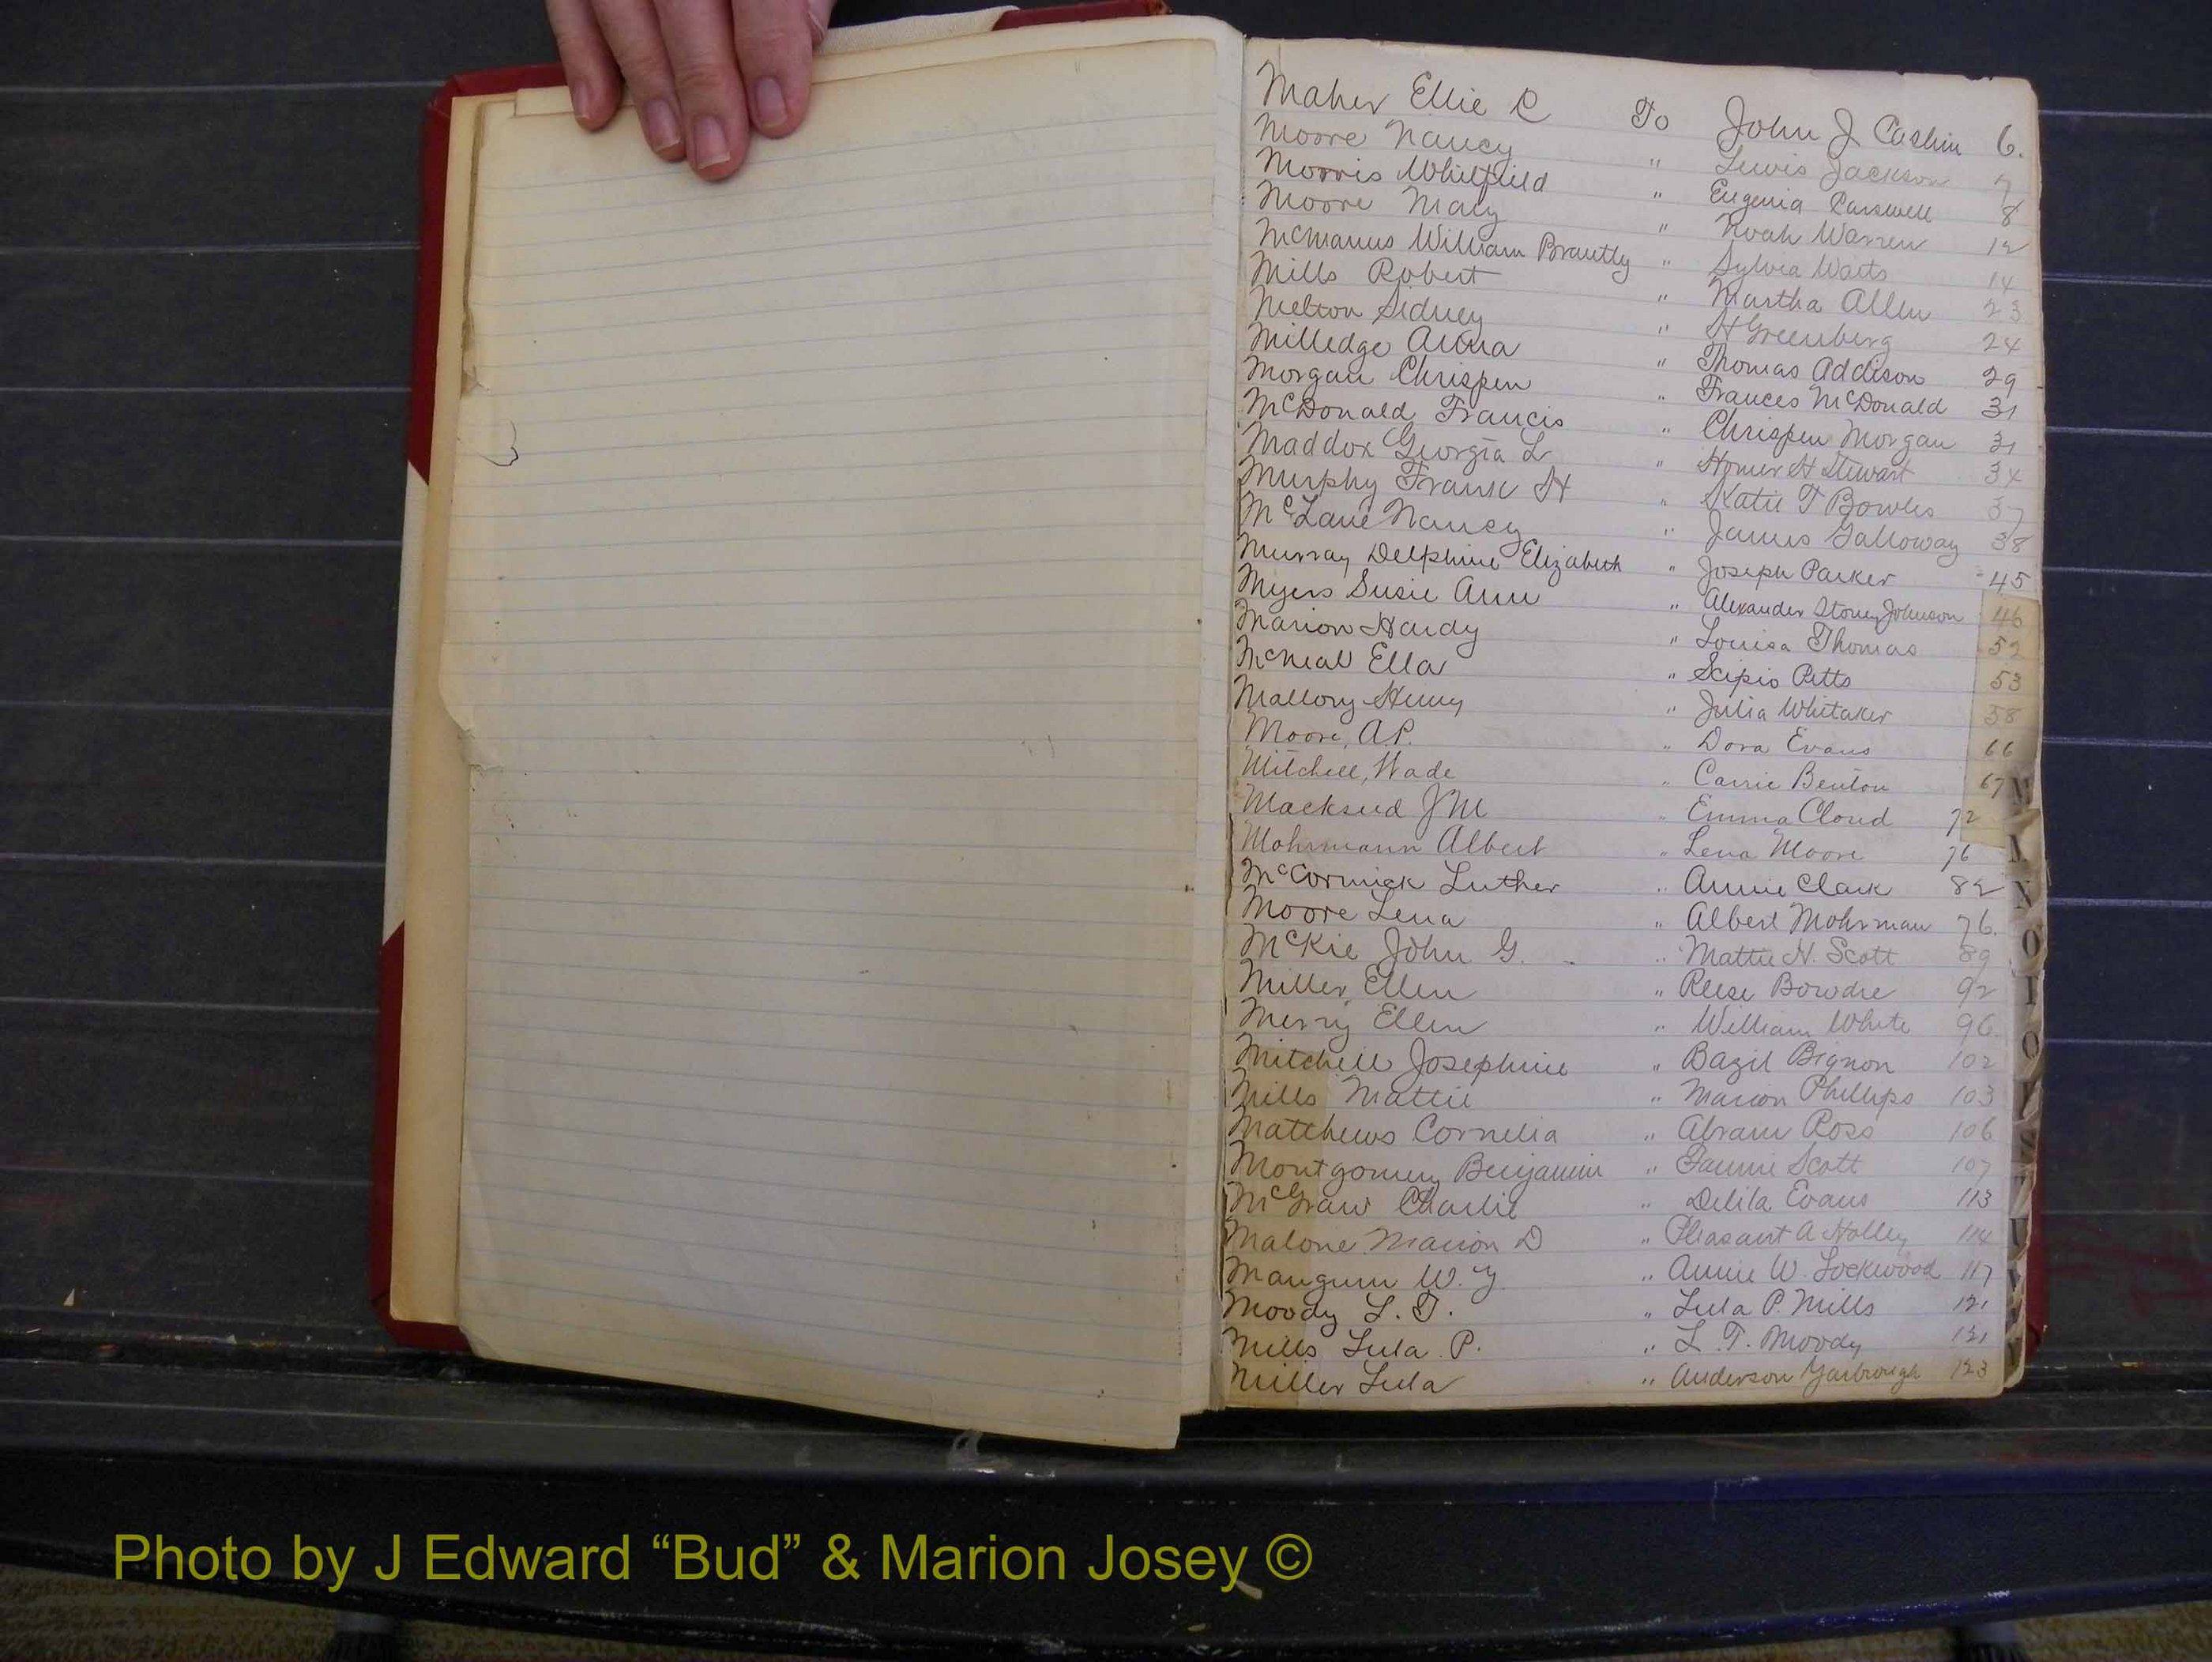 Maher Ellie R To John J Cashin 6.
Moore Nancy " Lewis Jackson 7
Morris Whitfield " Eugenia Carswell 8
Moore Mary " Noah Warren 12
McManus William Brantly " Sylvia Watts 14
Mills Robert " Martha Allen 23
Melton Sidney " H Greenberg 24
Milledge Anna " Thomas Addison 29
Morgan Chrispen " Frances McDonald 31
McDonald Francis " Chrispen Morgan 31
Maddox Georgia L " Homer H Stewart 34
Murphy Frank H " Katie T Bowles 37
McLane Nancy " James Galloway 38
Murray Delphine Elizabeth " Joseph Parker 45
Myers Susie Ann " Alexander Stoney Johnson 46
Marion Hardy " Louisa Thomas 52
McNeal Ella " Scipio Pitts 53
Mallory Henry " Julia Whitaker 58
Moore, A.P. " Dora Evans 66
Mitchell, Wade " Carrie Benton 67
Macksud J M " Emma Cloud 72
Mohrmann Albert " Lena Moore 76
McCormick Luther " Annie Clark 82
Moore Lena " Albert Mohrman 76.
McKie John G. " Mattie H. Scott 89
Miller Ellen " Reese Bowdre 92
Merry Ellen " William White 96.
Mitchell Josephine " Bazil Bignon 102
Mills Mattie " Marion Phillips 103
Matthews Cornelia " Abram Ross 106
Montgomery Benjamin " Fannie Scott 107
McGraw Charlie " Delila Evans 113
Malone Marion D " Pleasant A Holley 114
Mangum W. Y. " Annie W. Lockwood 117
Moody L. T. " Lula P. Mills 121
Mills Lula P. " L. T. Moody 121
Miller Lula " Anderson Yarbrough 123
Photo by J Edward “Bud” & Marion Josey ©